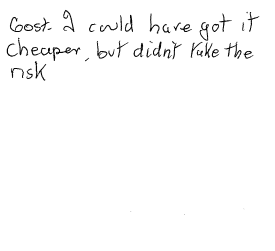 Cost. I could have got it
Cheaper, but didn't take the
risk